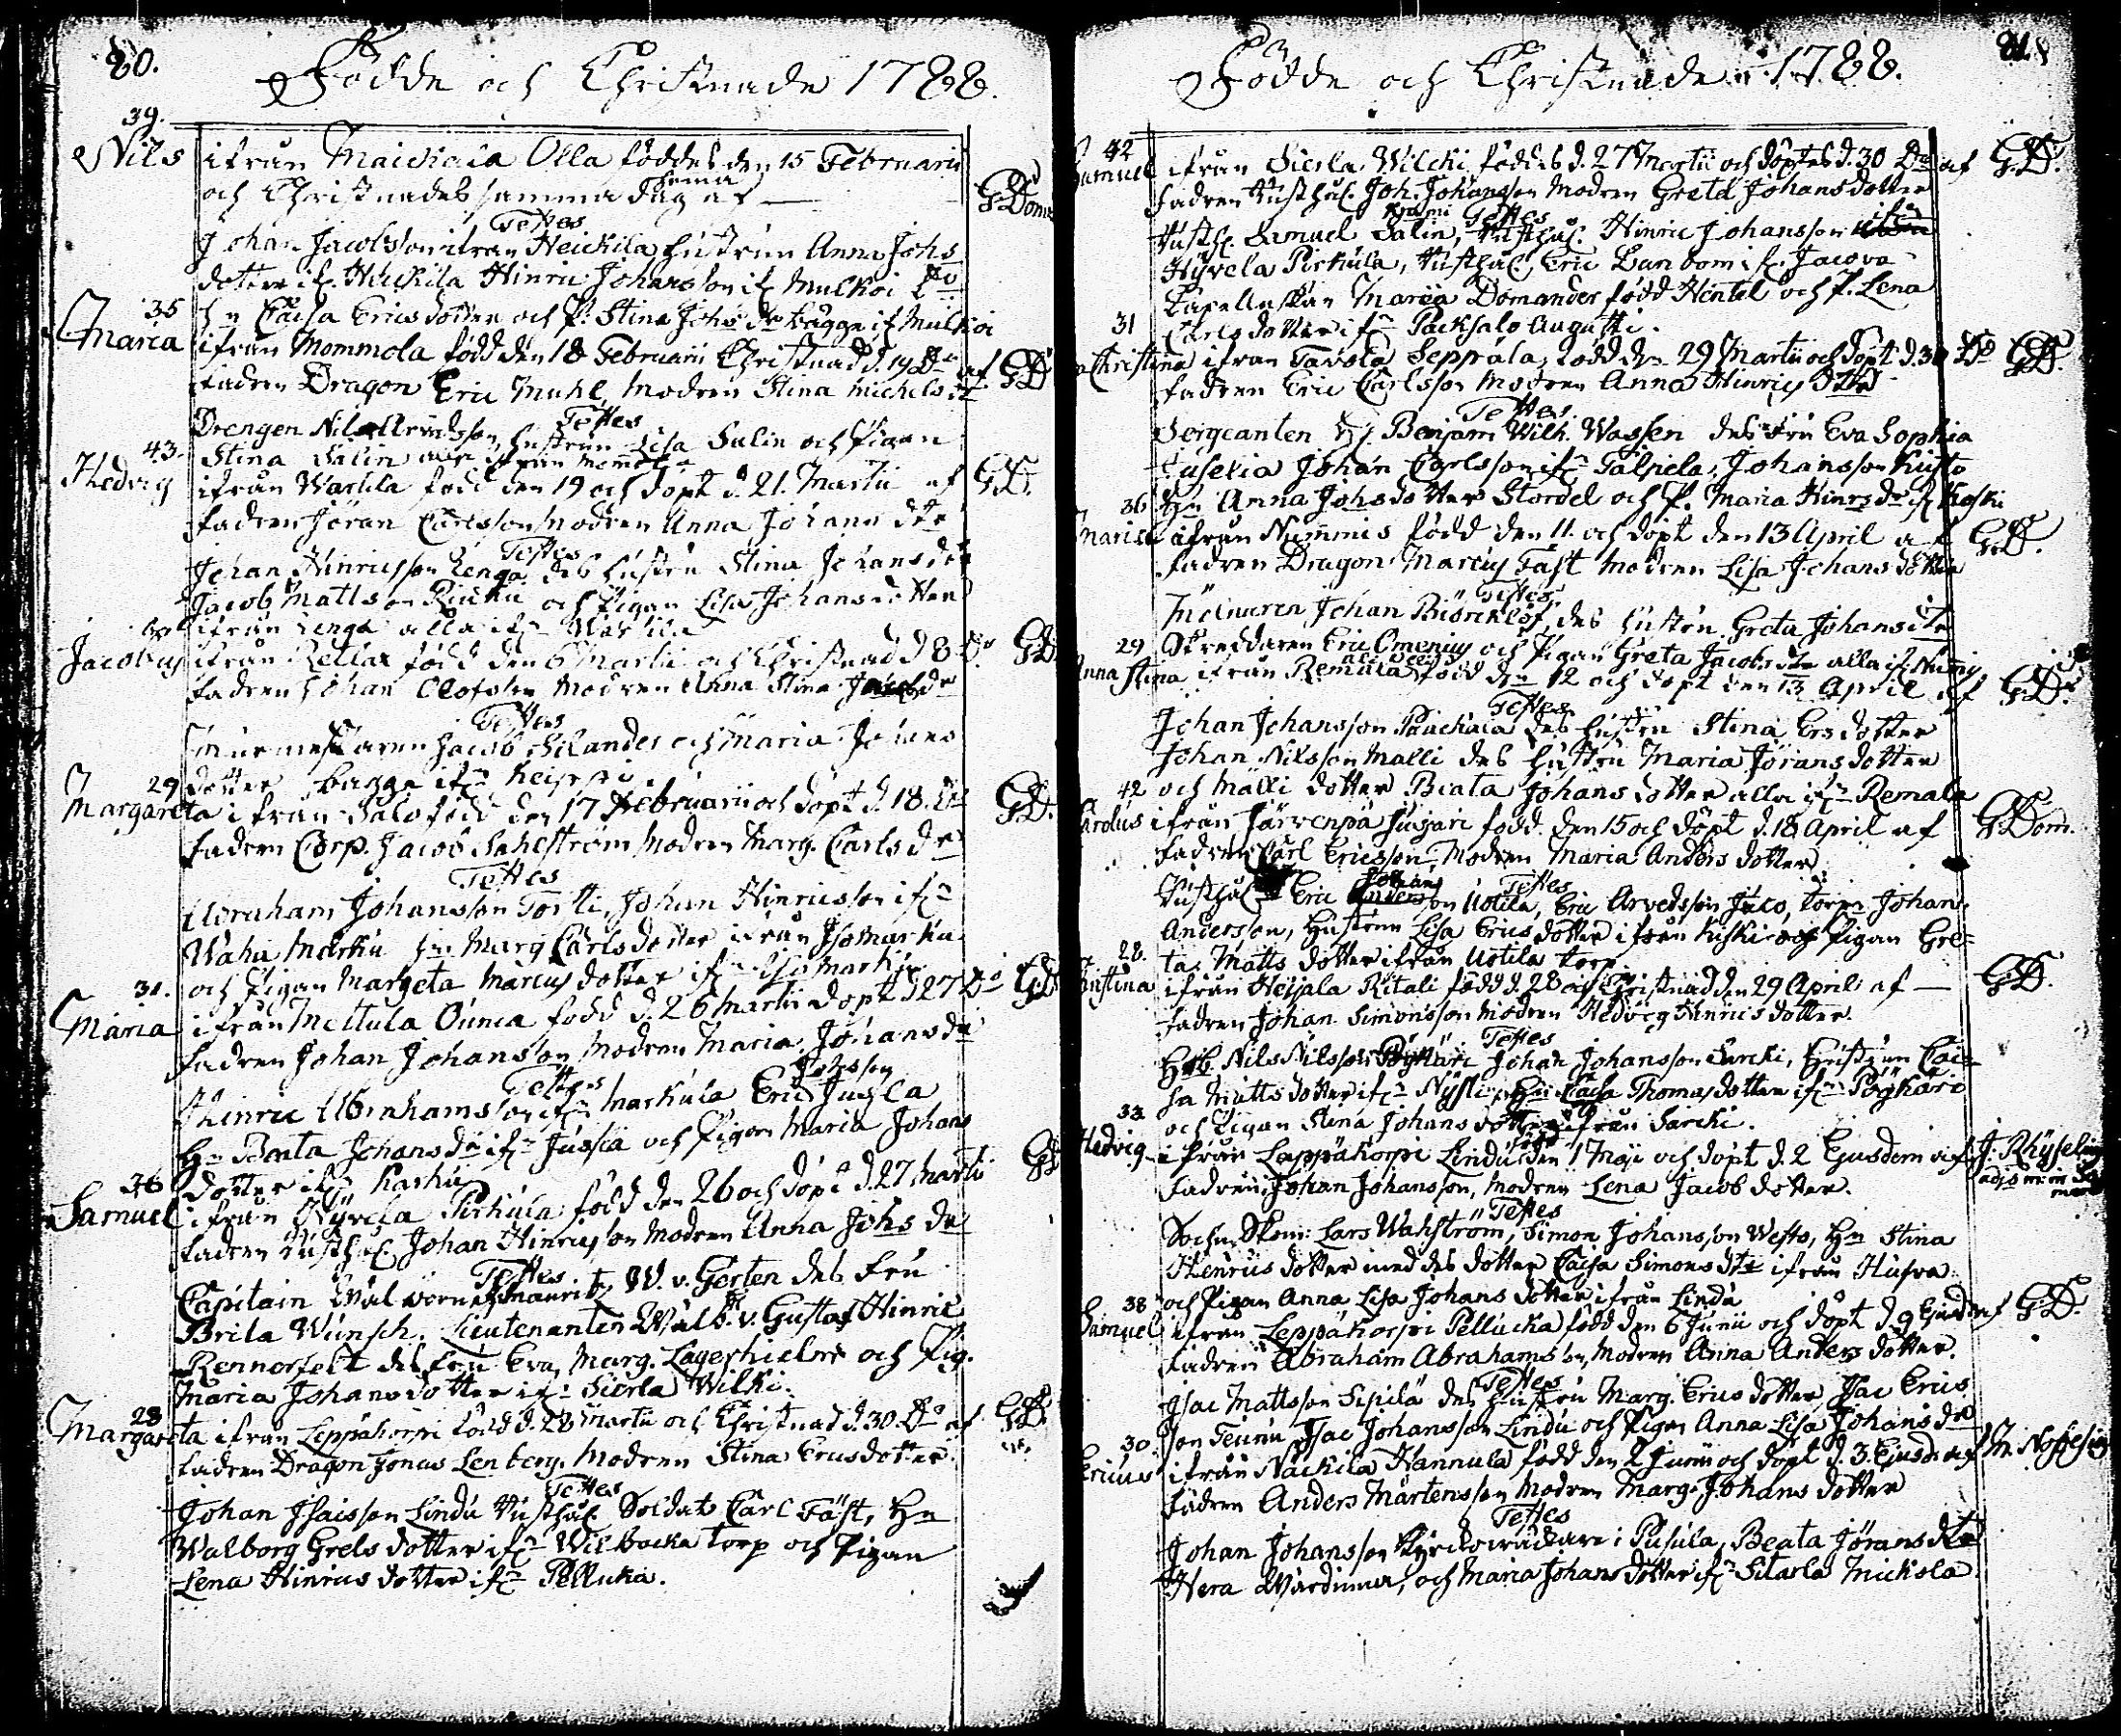 80.
Födde och Christnade 1788.
39.
Nils ifrån Maickala Olla föddes den 15 Februarii
och Christnades samma dag af G Dom
Testes
Johan Jacobsson ifrån Heickila hustrun Anna Johs
dotter if. Heickila Hinric Johansson if Mulkoi
Hn Caisa Ericsdotter och P. Stina Johs dr bägge if Mulkoi
35
Maria ifrån Mommola född den 18 Februarii Christnad d. 19 Do af GD
fadren Dragon Eric Muhl, modren Stina Michelsdr
Testes
Drengen Nils Arvidsson, hustrun Lisa Salin och Pigan
Stina Salin alla ifrån Mommola
43.
Hedvig ifrån Warhla född den 19 och döpt d. 21. Martii af GD.
fadren Jöran Carlsson modren Anna Johans dtr
Testes
Johan Hinricsson Lenga des hustru Stina Johansdtr
Jacob Mattsson och Pigan Lisa Johansdotter
ifrån Lenga alla if
Jacobus ifrån Retlax född den 6 Martii och Christnad d 8 Do GD
fadren Johan Olofsson modren Anna Stina Jacobsdr
Testes
Murmestaren Jacob Silander och Maria Johans
dotter bägge ifn
29
Margareta ifrån Salo född den 17 Februarii och döpt d. 18. Do GD.
fadren Corp. Jacob Sahlström modren Marg. Carls dr
Testes
Abraham Johansson Tortti, Johan Hinricsson ifn
Waha Marku Hn Marg Carlsdotter ifrån Iso Marku
och Pigan Margeta Marcusdotter ifn Iso Marku
31.
Maria ifrån Mettula Ounia född d. 26 Martii döpt d 27 Do GD
fadren Johan Johansson modren Maria Johansdr
Testes Johsson
Hinric Abrahamsson ifn Markula Eric Jussla
Hn Beata Johansdr ifn Jussla och Pigan Maria Johans
dotter ifn Karhu
36
Samuel ifrån Hyvela Pirkula född den 26 och döpt d. 27 Martii GD
fadren Rusth. Johan Hinricsson modren Anna Johs dr
Testes.
Capitain Mauritz W. v. Gerten des Fru
Brita Wunsch. Lieutenanten Wälb. v. Gustaf Hinric
Rennerfelt des Fru Eva Marg. Lagerhielm och Pig.
Maria Johansdotter ifn Sierla Wilki.
28
Margareta ifrån Leppäkorpi född d. 28 Martii och Christnad d. 30. Do af GD
fadren Dragon Jonas Lenberg. modren Stina Ericsdotter.
Testes
Johan Isaisson Lindu Rusthål. Soldat Carl Fäst, Hn
Walborg Grelsdotter ifn Wilbacka torp och Pigan
Lena Hinricsdotter ifn Pelluka.
81.
Födde och Christnade 1788.
42
Samuel ifrån Sierla Wilcki föddes d. 27 Martii och döptes d. 30 Do af G.D.
fadren Rusthål. Joh. Johansson modren Greta Johansdotter
Testes
Rusth. Samuel Salin, Rusthål. Hinric Johansson ifn
Hyvela Pirkula, Rusthål. Eric Lunbom if. Jacova
Capellanskan Maria Domander född Hentel och P. Lena
Carlsdotter ifn Packsalo Augutti.
31
Christina ifrån Tavola Seppala, född den 29 Martii och döpt d. 30 Do GD.
fadren Eric Carlsson modren Anna Hinrics dtr
Testes.
Sergeanten Hr Benjam Wilh. Wassen des Fru Eva Sophia
Johan Carlsson ifn Talpiela, Johansson
Hn Anna Johsdotter Stordel och P. Maria Hinrsdr if Koski
36
Maria ifrån Nummis född den 11. och döpt den 13 April af GD.
fadren Dragon Marcus Fast modren Lisa Johansdotter
Testes
Johan Biörcklöf, des hustru Greta Johansdtr
Skreddaren Eric Omenius och Pigan Greta Jacobsdtr alla if. Nummis
29
Anna Stina ifrån Remala född den 12 och döpt den 13 April af GD.
Testes
Johan Johansson Paackala des hustru Stina Ersdotter
Johan Nilsson Malli des hustru Maria Göransdotter
och Malli dotter Beata Johansdotter alla ifn Remala
42
Carolus ifrån Järvenpä Jusjari född den 15 och döpt d. 18 April af G.Dom.
fadren Carl Ericsson modren Maria Andersdotter
Testes
Rusthål Eric Johans Uotila, Eric Arvedsson Jaco, torpn Johan
Andersson, hustrun Lisa Ericsdotter ifrån Kiski och Pigan Gre-
ta Mattsdotter ifrån Uotila torp
28.
Christina ifrån Heijala Ritali född d. 28 och Christnad den 29 April af GD.
fadren Johan Simonsson modren Hedvig Hinricsdotter.
Testes
Husb Nils Nilsson Pöykäri Johan Johansson Särcki, Hustrun Cai-
sa Mattsdotter ifn Nysti, Hn Caisa Thomasdotter ifn Pöghäri
och Pigan Stina Johansdotter ifrån Särcki.
33
Hedvig ifrån Leppäkorpi Lindu född den 1 Maji och döpt d. 2 Ejusdem af J. Rhyselin
fadren Johan Johansson, modren Lena Jacobdotter.
Testes
Sockn Skom: Lars Wahlström, Simon Johansson Westo, Hn Stina
Henricsdotter med des dotter Caisa Simonsdtr ifrån Husva
och Pigan Anna Lisa Johansdotter ifrån Lindu
38
Samuel ifrån Leppäkorpi Pellucka född den 6 Junii och döpt d. 9 Ejusd af GD.
fadren Abraham Abrahamsson, modren Anna Andersdotter.
Testes
Isac Mattsson Sipilä des hustru Marg. Ericsdotter, Isac Erics
son Teunu Isac Johansson Lindu och Pigan Anna Lisa Johansdr
30.
Ericus ifrån Näckila Hannula född den 2 Junii och döpt d. 3. Ejusd. af M. Nohselius
fadren Anders Mårtensson modren Marg. Johansdotter
Testes
Johan Johansson Kyrkowärdare i Pusula, Beata Jöransdtr
Hera Wärdinna, och Maria Johansdotter ifn Sitarla Mickola